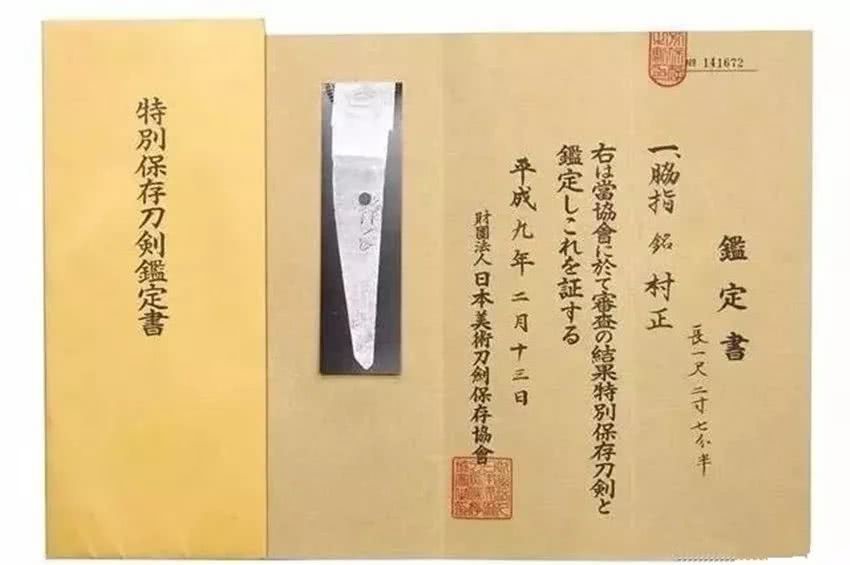 鑑定書
No 141672
一、脇指 銘 村正
長一尺二寸七分半
右は當協會に於て審査の結果特別保存刀剣と
鑑定しこれを証する
平成九年二月十三日
財團法人日本美術刀劍保存協會
特別保存刀剣鑑定書